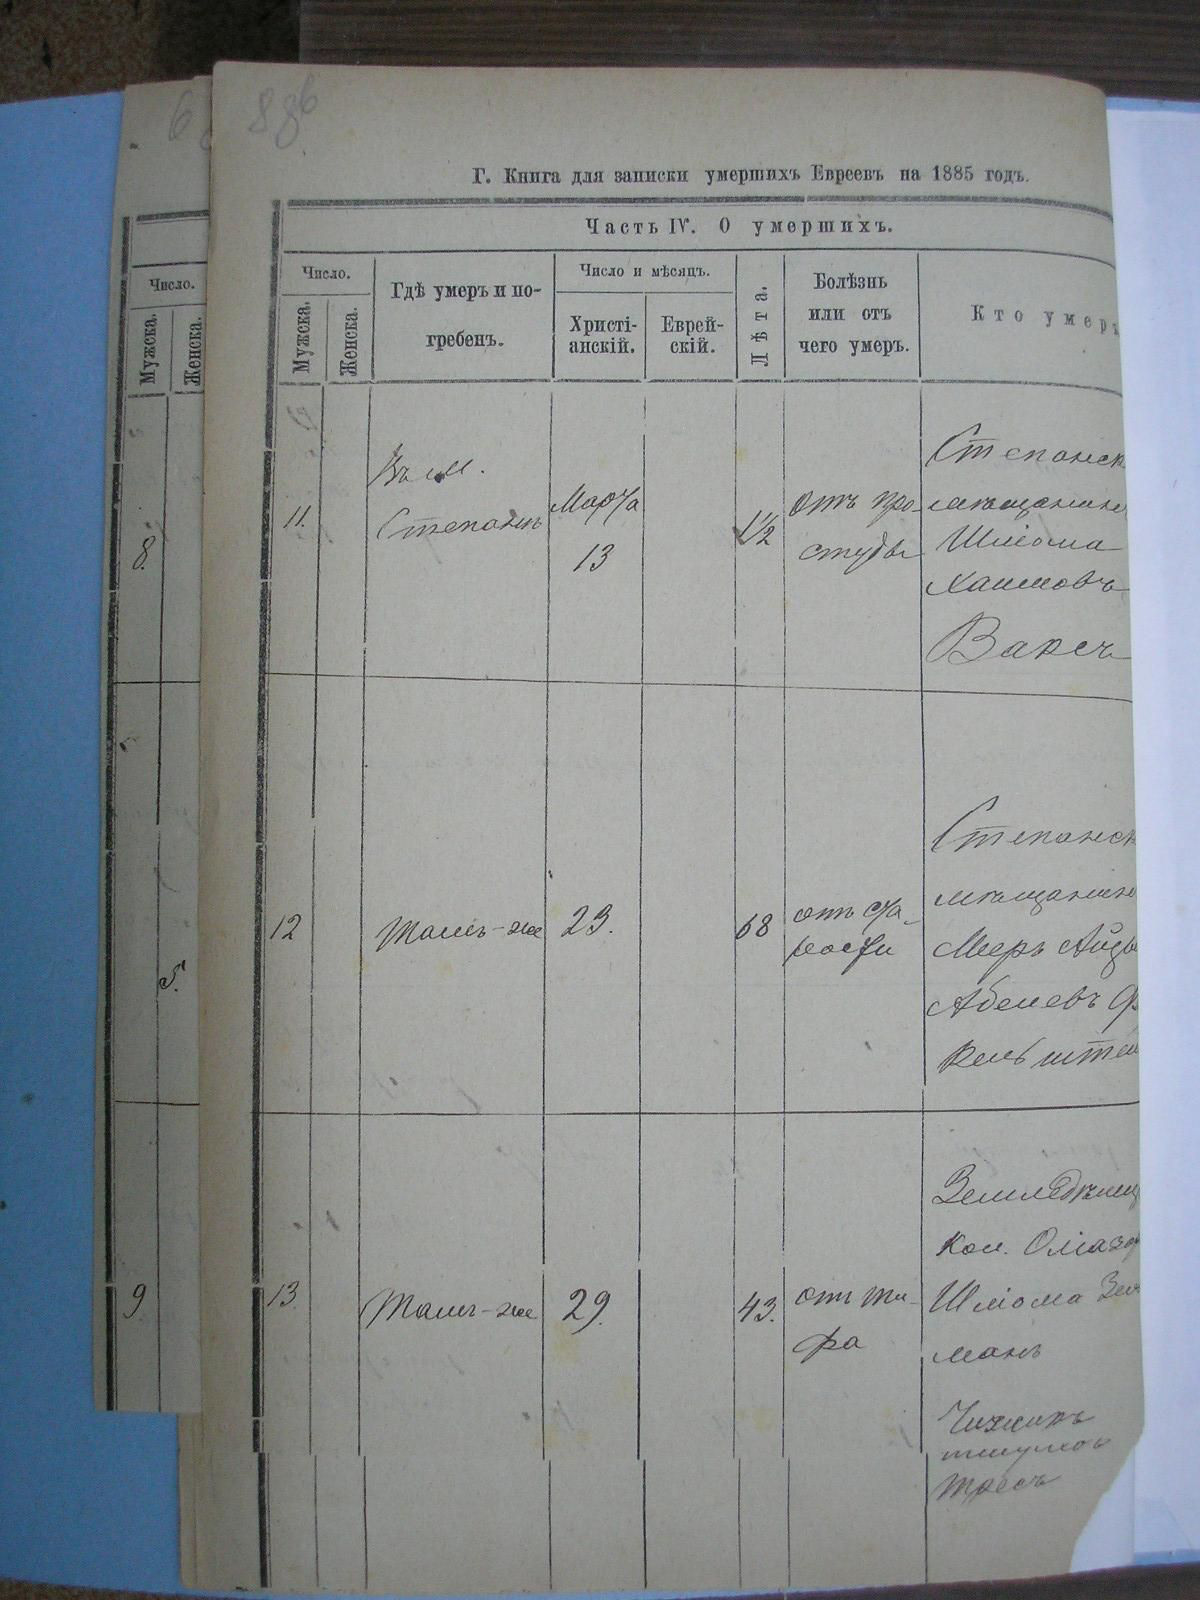 886
Г. Книга для записки умершихъ Евреевъ на 1885 годъ.
Часть IV. О умершихъ.
Число.
Мужска.
Женска.
Гдѣ умеръ и по-
гребенъ.
Число и мѣсяцъ.
Христі-
анскій.
Еврей-
скій.
Лѣта.
Болѣзнь
или отъ
чего умеръ.
Кто умеръ
11.
Въ м.
Степани
Марта
13
1½
отъ про-
студы
Степанск
мѣщанин
Шліома
Хаимовъ
Ваксъ
12
Тамъ-же
23.
68
отъ ста-
рости
Степанск
мѣщанин
Мееръ
Абелевъ
кельштей
13.
Тамъ-же
29.
43.
отъ ти-
фа
Земледѣлец
Кол.
Шліома Зел
манъ
Число.
Мужска.
Женска.
8.
5.
9